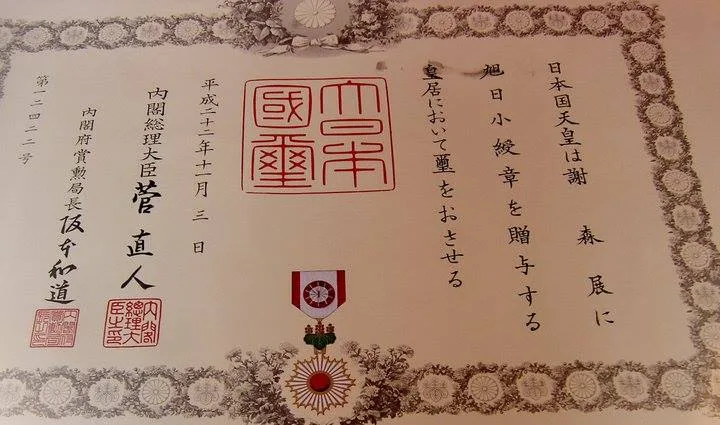 日本国天皇は謝 森 展に
旭日小綬章を贈与する
皇居において璽をおさせる
大日本
國璽
平成二十二年十一月三日
内閣総理大臣 菅 直人
内閣総理大臣之印
内閣府賞勲局長 阪本和道
第一二四二二号